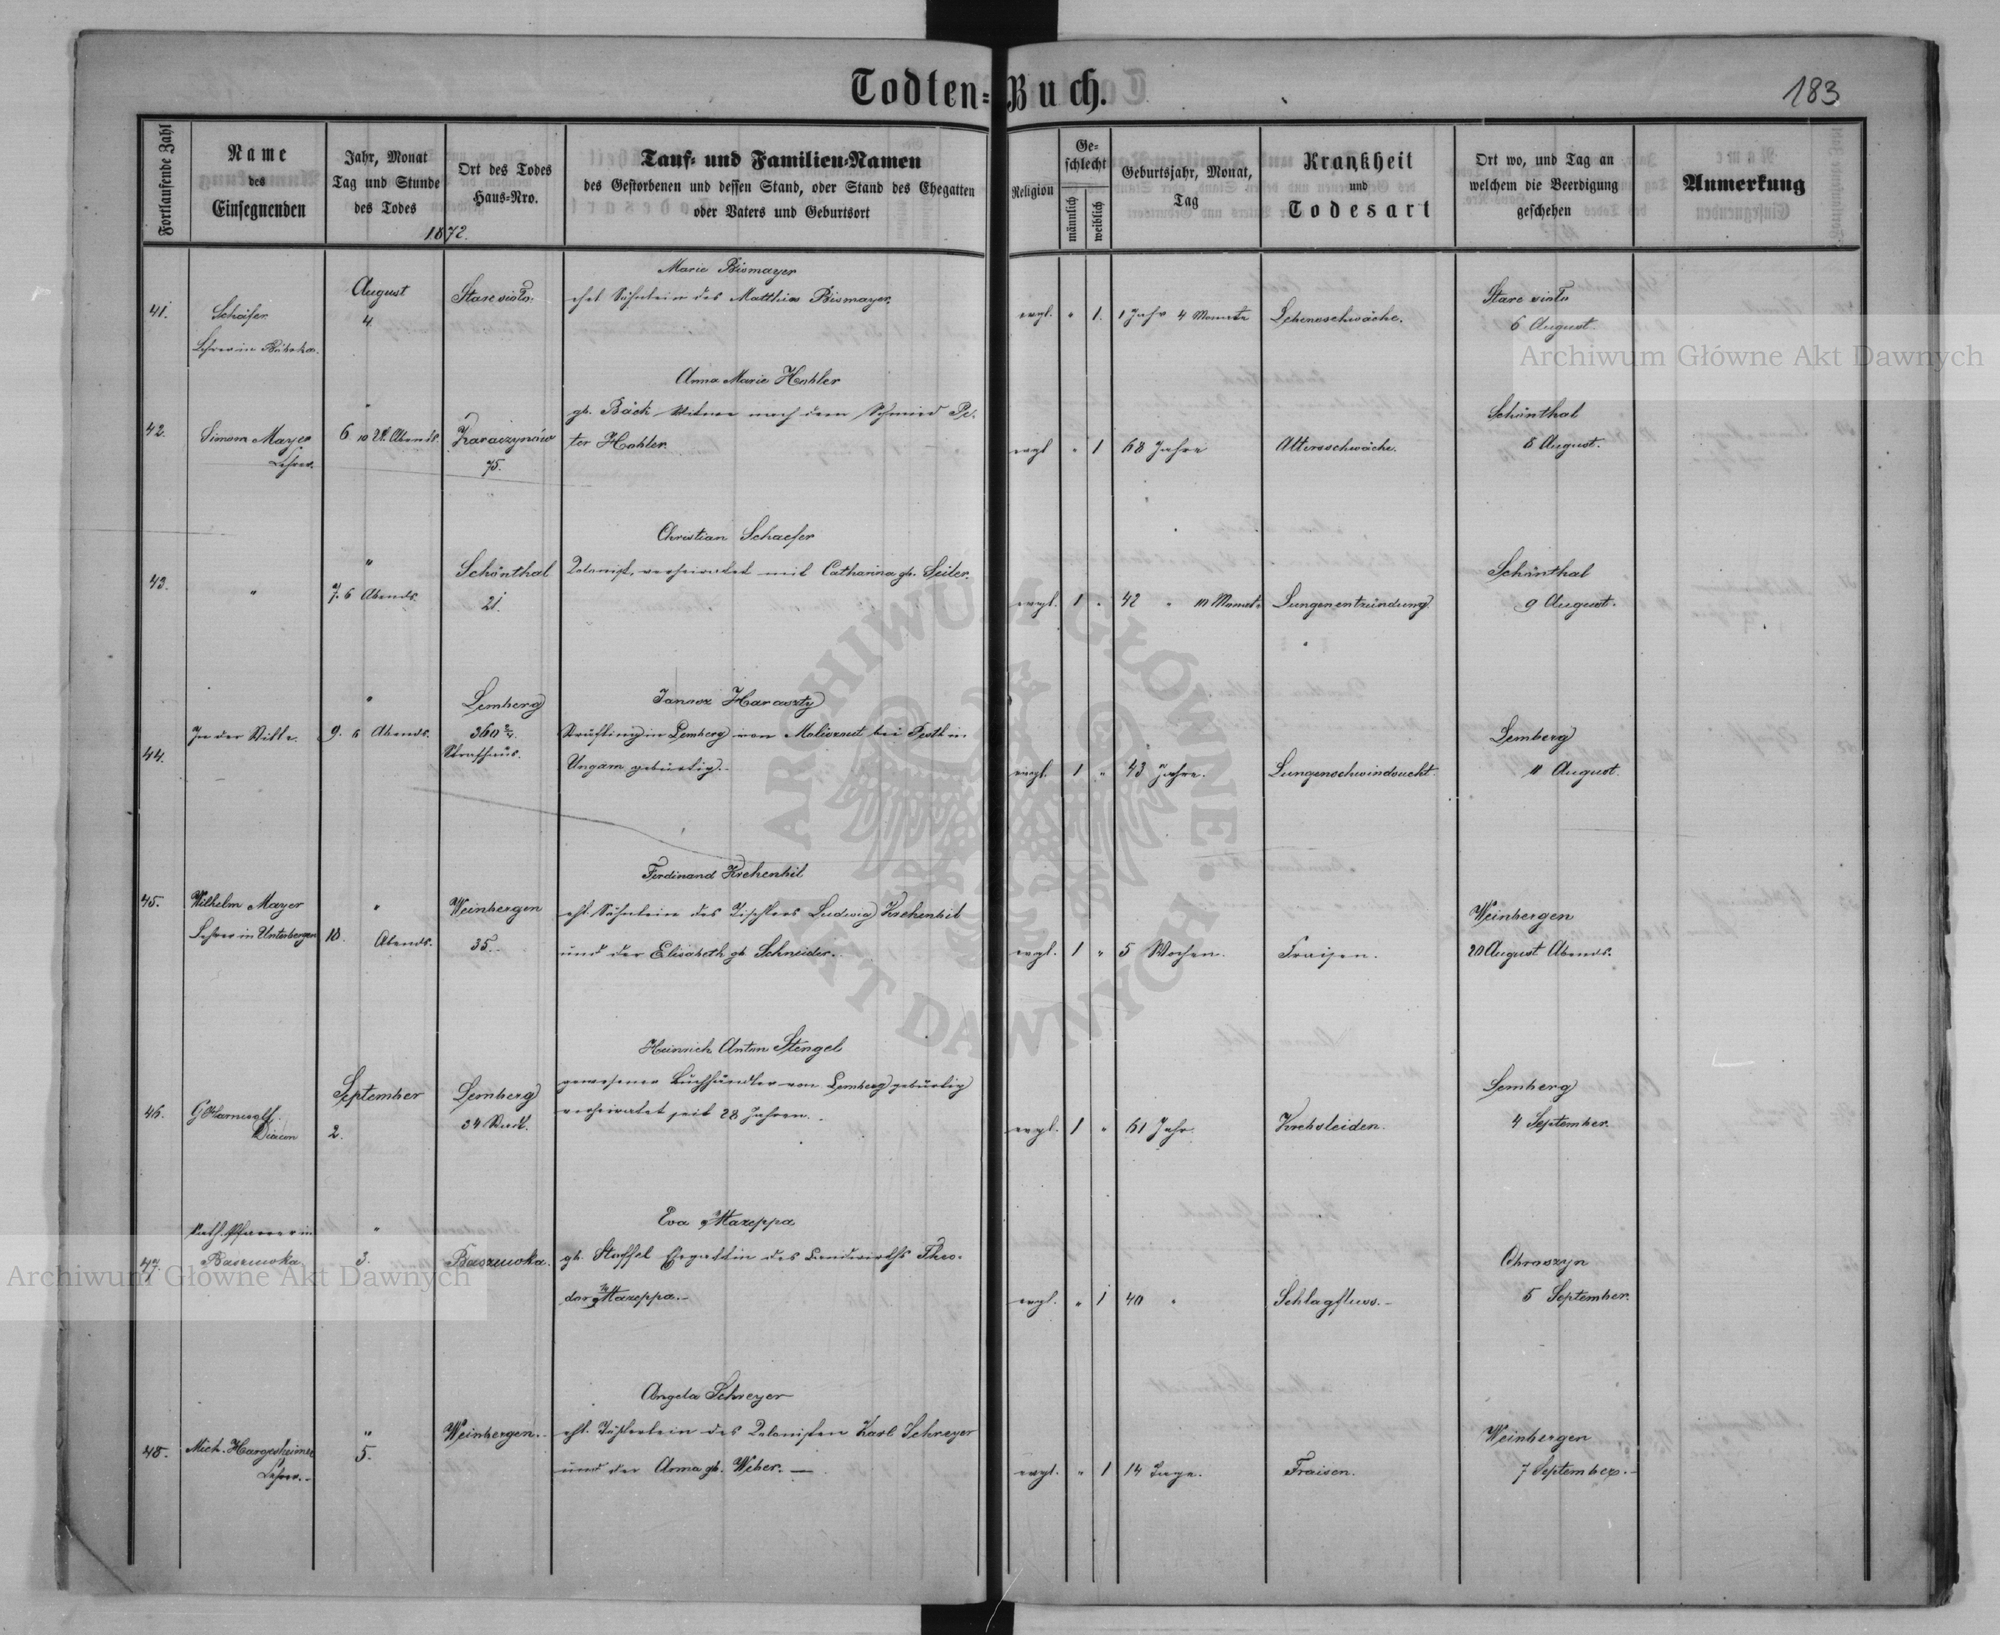 Todten=Buch.
183
Fortlaufende Zahl
Name
des
Einsegnenden
Jahr, Monat
Tag und Stunde
des Todes
1872.
Ort des Todes
Haus=Nro.
Tauf= und Familien=Namen
des Gestorbenen und dessen Stand, oder Stand des Ehegatten
oder Vaters und Geburtsort
Religion
Ge=
schlecht
männlich
weiblich
Geburtsjahr, Monat,
Tag
Krankheit
und
Todesart
Ort wo, und Tag an
welchem die Beerdigung
geschehen
Anmerkung
41.
Schäfer
Lehrer in
August
4.
Marie Bismayer
ehel. Söhnlein des Matthias Bismayer.
evgl. " 1. 1 Jahr 4 Monate
Lebensschwäche.
6 August.
42.
Simon Mayer
Lehrer.
"
6 10 Abends.
Karaczynów
75.
Anna Marie Hohler
gb. Bäck Witwe nach dem Schmied Pe-
ter Hohler.
evgl " 1 68 Jahre
Altersschwäche.
Schönthal
8 August.
43.
"
"
7. 6 Abends.
Schönthal
21.
Christian Schaefer
Colonist, verheiratet mit Catharina gb. Seiler.
evgl. 1 " 42 " 10 Monate
Lungenentzündung.
Schönthal
9 August.
44.
"
9. 6 Abends.
Lemberg
360 2/4.
Strafhaus.
Haraszty
Sträfling in Lemberg von bei Pesth in
Ungarn gebürtig.
evgl. 1 " 43 Jahre.
Lungenschwindsucht.
Lemberg
11 August.
45.
Wilhelm Mayer
Lehrer in Unterbergen
"
18. Abends.
Weinbergen
35.
Ferdinand Krehenbil
ehl. Söhnlein des Tischlers Ludwig Krehenbil
und der Elisabeth gb Schneider.
evgl. 1 " 5 Wochen.
Fraisen.
Weinbergen
20 August Abends.
46.
Diacon
September
2.
Lemberg
34
Heinrich Anton Stengel
gewesener Buchhändler von Lemberg gebürtig
verheiratet seit 28 Jahren.
evgl. 1 " 61 Jahr.
Krebsleiden.
Lemberg
4 September.
47.
Kath. Pfarrer in
Basiuwka
"
3.
Basiuwka.
Eva Mazeppa
gb. Stoffel Ehegattin des Landwirths Theo-
dor Mazeppa.
evgl. " 1 40 "
Schlagfluss.
Obroszyn
5 September.
48.
Mich. Hargesheimer
Lehrer.
"
5.
Weinbergen.
Angela Schreyer
ehl. Töchterlein des Colonisten Karl Schreyer
und der Anna gb. Weber.
evgl. " 1 14 Tage.
Fraisen.
Weinbergen
7 September.
Archiwum Główne Akt Dawnych
Archiwum Główne Akt Dawnych
ARCHIWUM GŁÓWNE AKT DAWNYCH